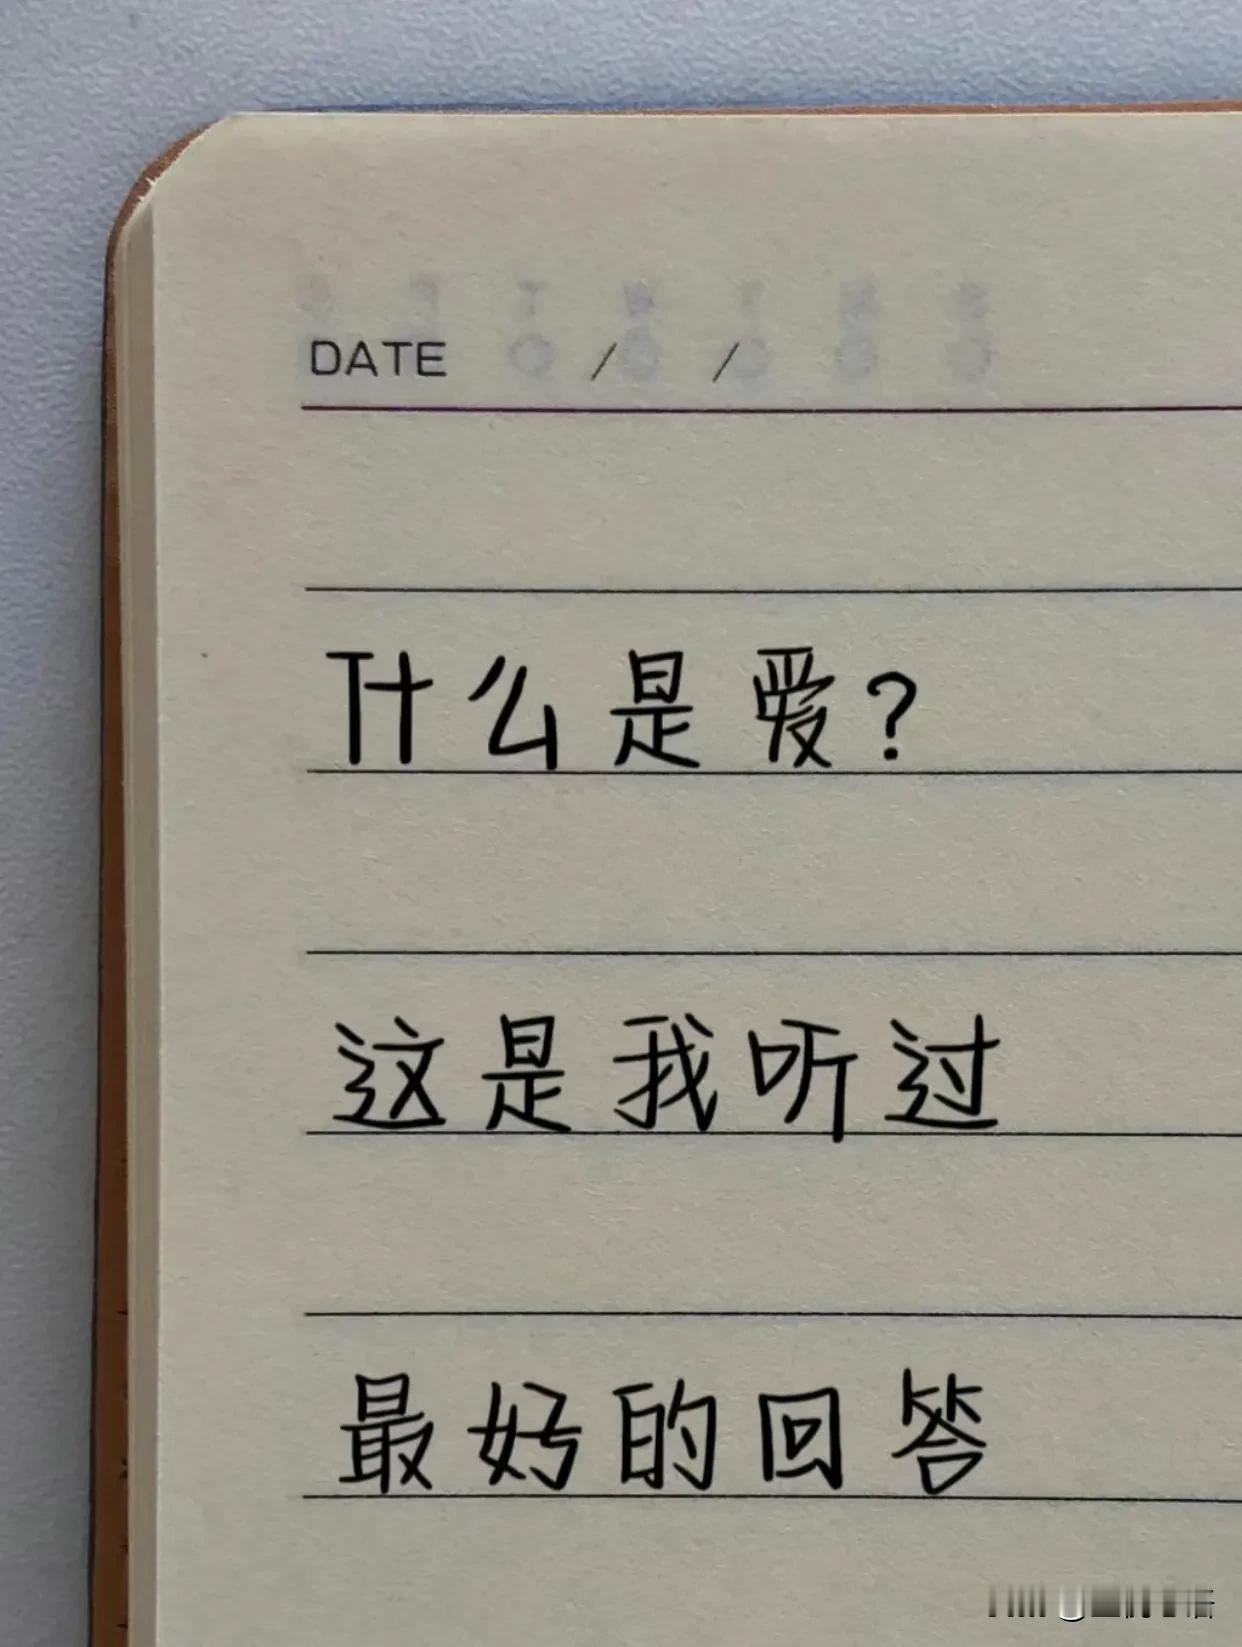 DATE / /
什么是爱?
这是我听过
最好的回答